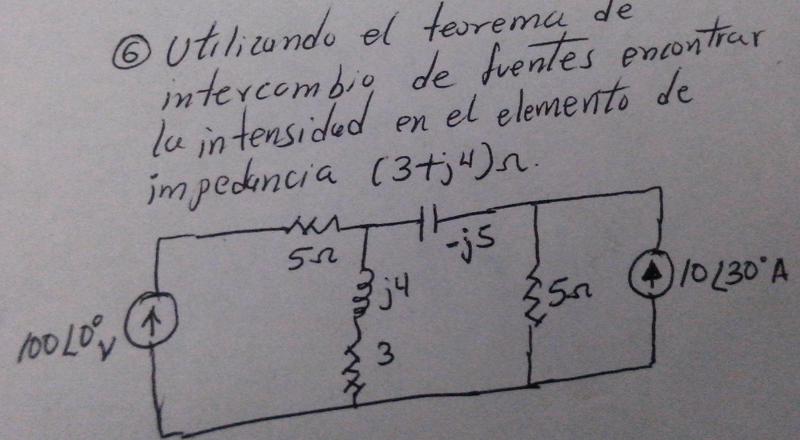 ⑥ Utilizando el teorema de
intercambio de fuentes encontrar
la intensidad en el elemento de
impedancia (3+j4)Ω.
5Ω
-j5
j4
5Ω
10∠30° A
100∠0° V
3